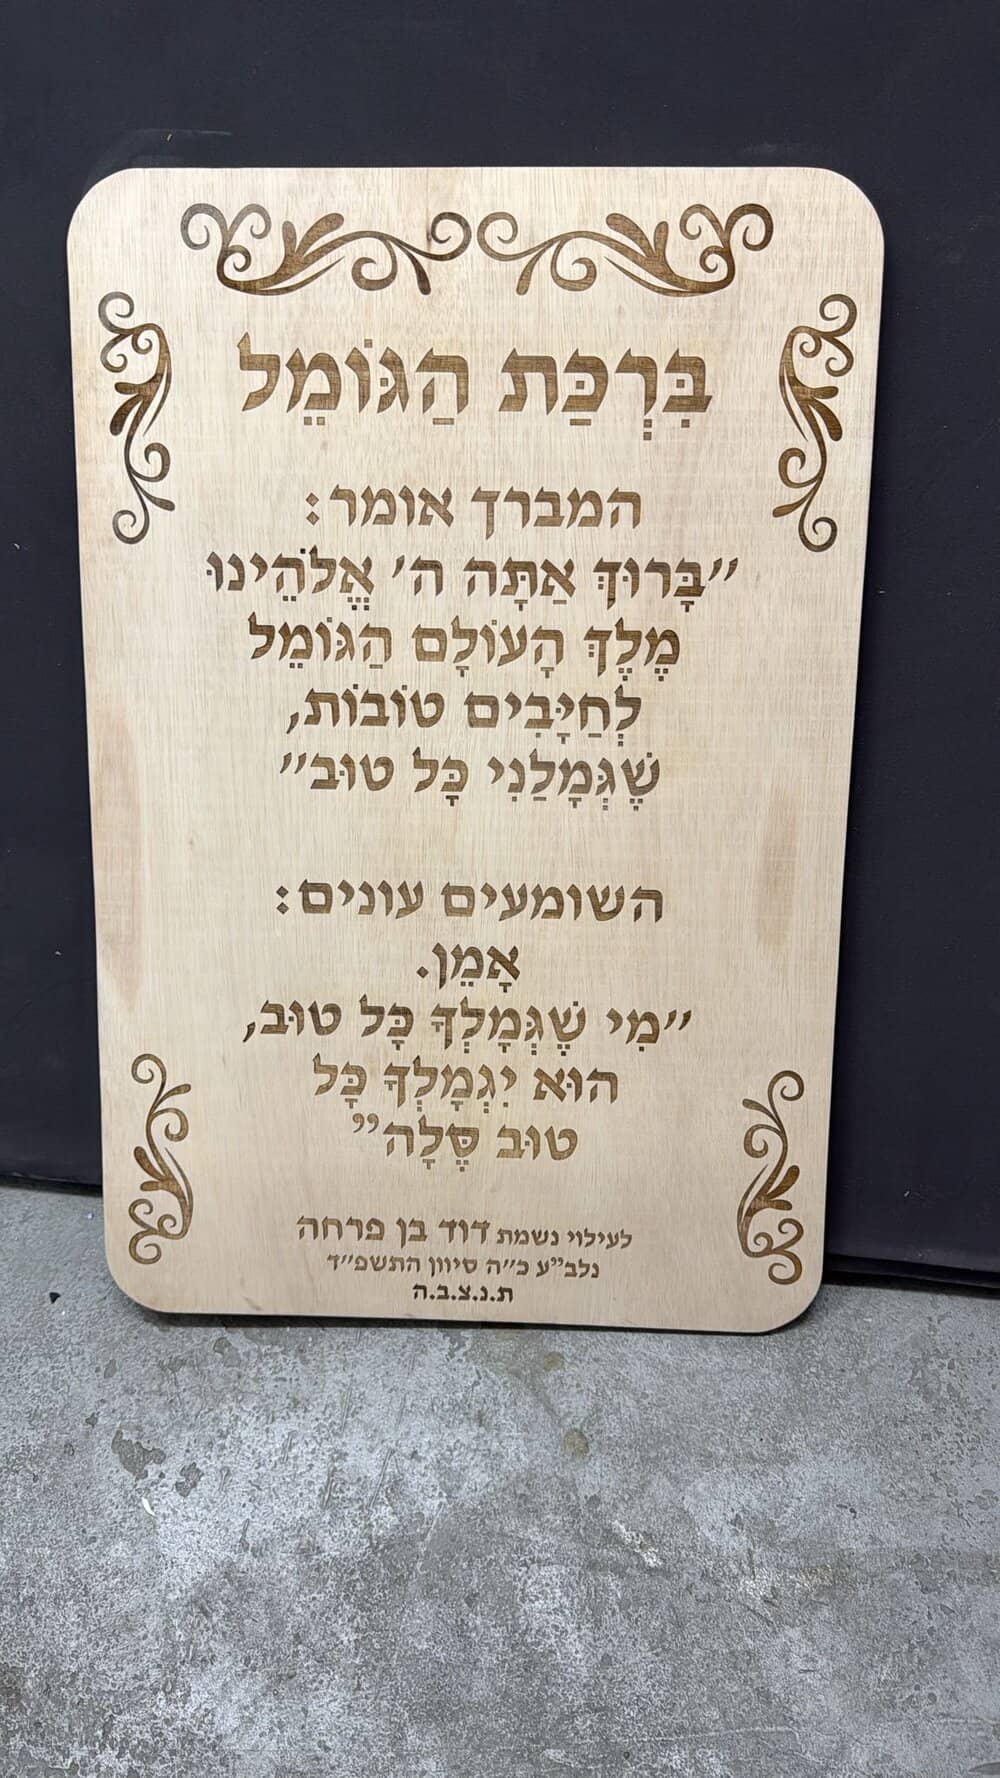 בִּרְכַּת הַגּוֹמֵל
המברך אומר:
"בָּרוּךְ אַתָּה ה' אֱלֹהֵינוּ
מֶלֶךְ הָעוֹלָם הַגּוֹמֵל
לְחַיָּבִים טוֹבוֹת,
שֶׁגְּמָלַנִי כָּל טוּב"
השומעים עונים:
אָמֵן.
"מִי שֶׁגְּמָלְךָ כָּל טוּב,
הוּא יִגְמָלְךָ כָּל
טוּב סֶּלָה"
לעילוי נשמת דוד בן פרחה
נלב"ע כ"ה סיוון התשפ"ד
ת.נ.צ.ב.ה